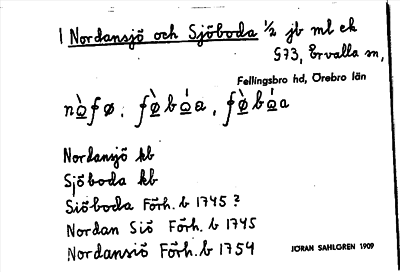 1 Nordansjö och Sjöboda 1/2 jb ml ek
973, Ervalla sn,
Fellingsbro hd, Örebro län
Nordansjö kb
Sjöboda kb
Siöboda Förh. b 1745 ?
Nordan Siö Förh. b 1745
Nordansiö Förh. b 1754
JÖRAN SAHLGREN 1909